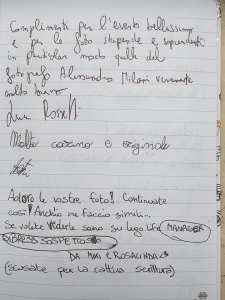 Complimenti per l'evento bellissimo
e per le foto stupende e sorprendenti
in particolar modo quelle del
fotografo Alessandro Milani veramente
molto bravo
Molto carino e originale
Adoro le vostre foto! Continuate
così! Anch'io ne faccio simili...
Se volete vederle sono su
MANAGER
SOSPETTOSO
DA MAI E ROSALINDA
(scusate per la cattiva scrittura)